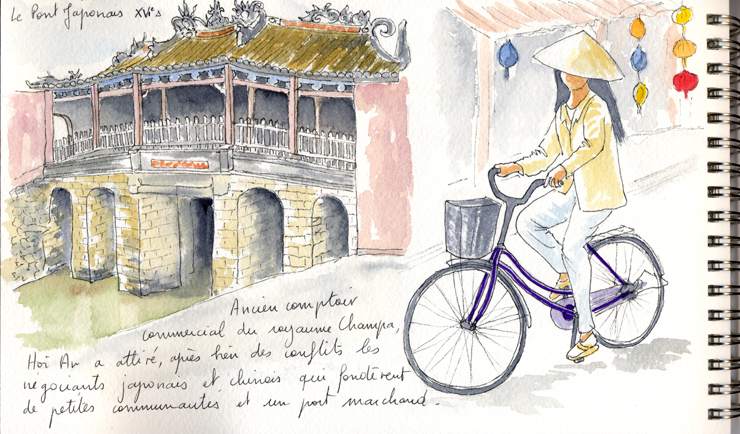 Le Pont Japonais XVIe s
Ancien comptoir
commercial du royaume Champa,
Hoï An a attiré, après bien des conflits les
négociants japonais et chinois qui fondèrent
de petites communautés et un port marchand.